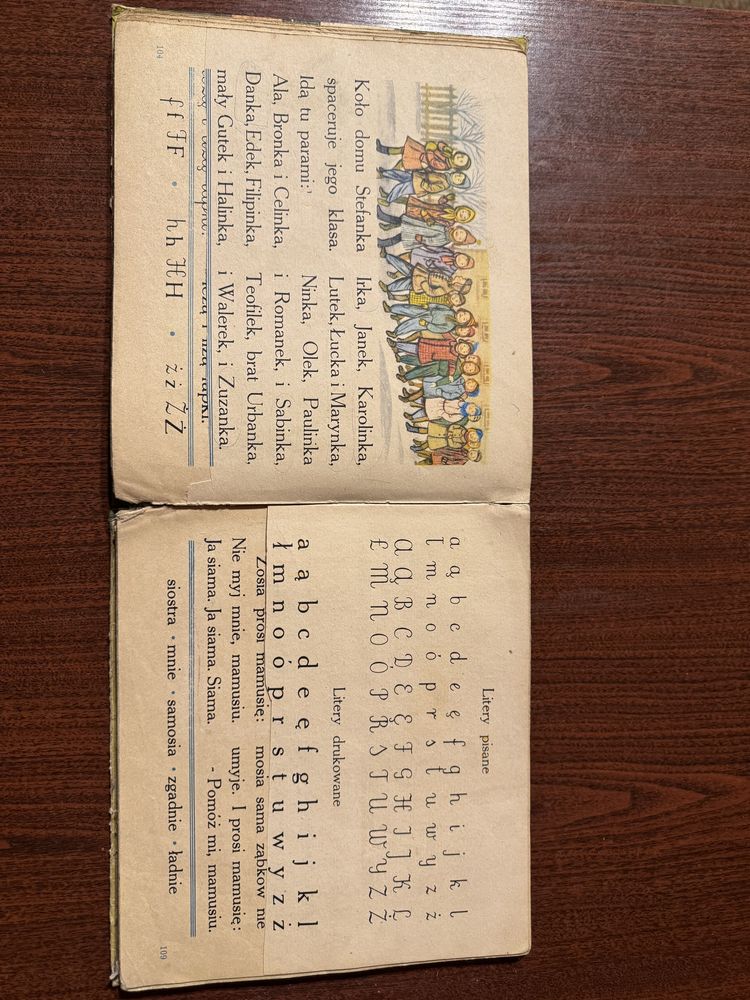 Koło domu Stefanka
spaceruje jego klasa.
Idą tu parami:
Ala, Bronka i Celinka,
Danka, Edek, Filipinka,
mały Gutek i Halinka,
Irka, Janek, Karolinka,
Lutek, Łucka i Marynka,
Ninka, Olek, Paulinka
i Romanek, i Sabinka,
Teofilek, brat Urbanka,
i Walerek, i Zuzanka.
f f F F • h h H H • ż ż Ż Ż
104
Litery pisane
a ą b c d e ę f g h i j k l
ł m n o ó p r s t u w y z ż
A Ą B C D E Ę F G H I J K L
Ł M N O Ó P R S T U W Y Z Ż
Litery drukowane
a ą b c d e ę f g h i j k l
ł m n o ó p r s t u w y z ż
Zosia prosi mamusię:
Nie myj mnie, mamusiu.
Ja siama. Ja siama. Siama.
mosia sama ząbków nie
umyje. I prosi mamusię:
- Pomóż mi, mamusiu.
siostra • mnie • samosia • zgadnie • ładnie
109